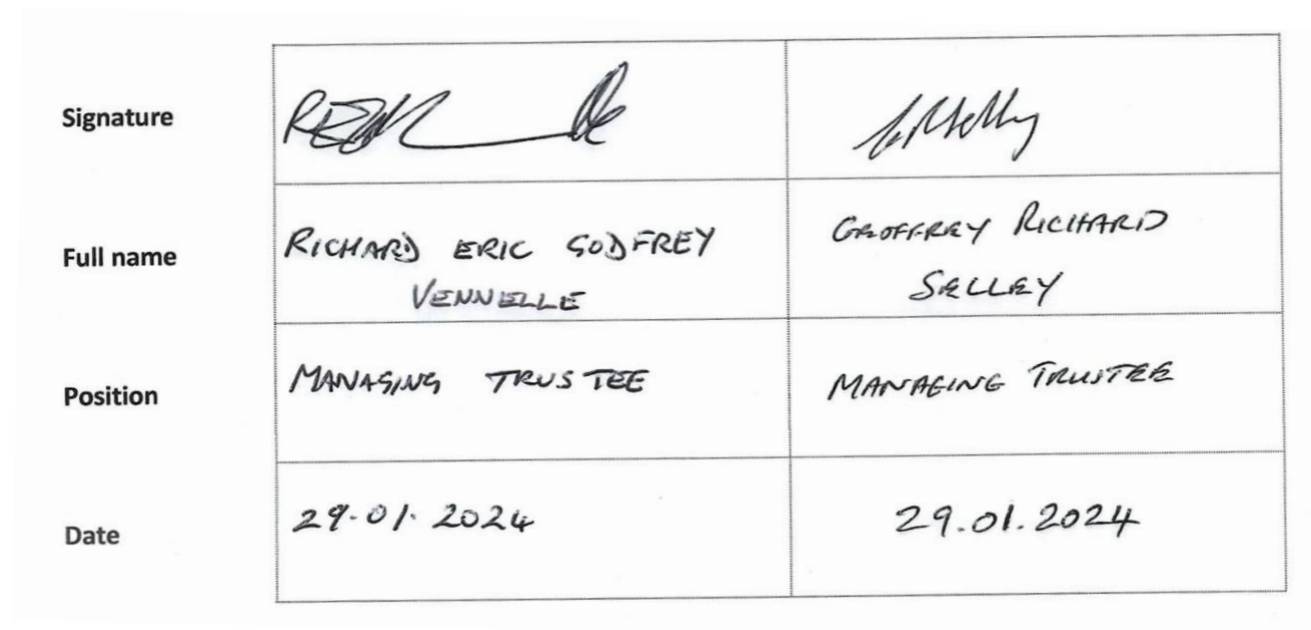 Signature
Full name
RICHARD ERIC GODFREY
VENNELLE
GEOFFREY RICHARD
SELLEY
Position
MANAGING TRUSTEE
MANAGING TRUSTEE
Date
29.01.2024
29.01.2024